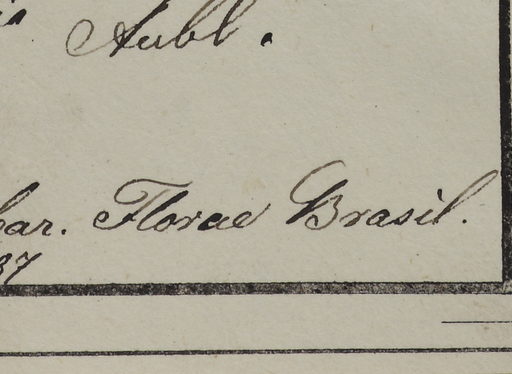 Aubl.
Florae Brasil.
37